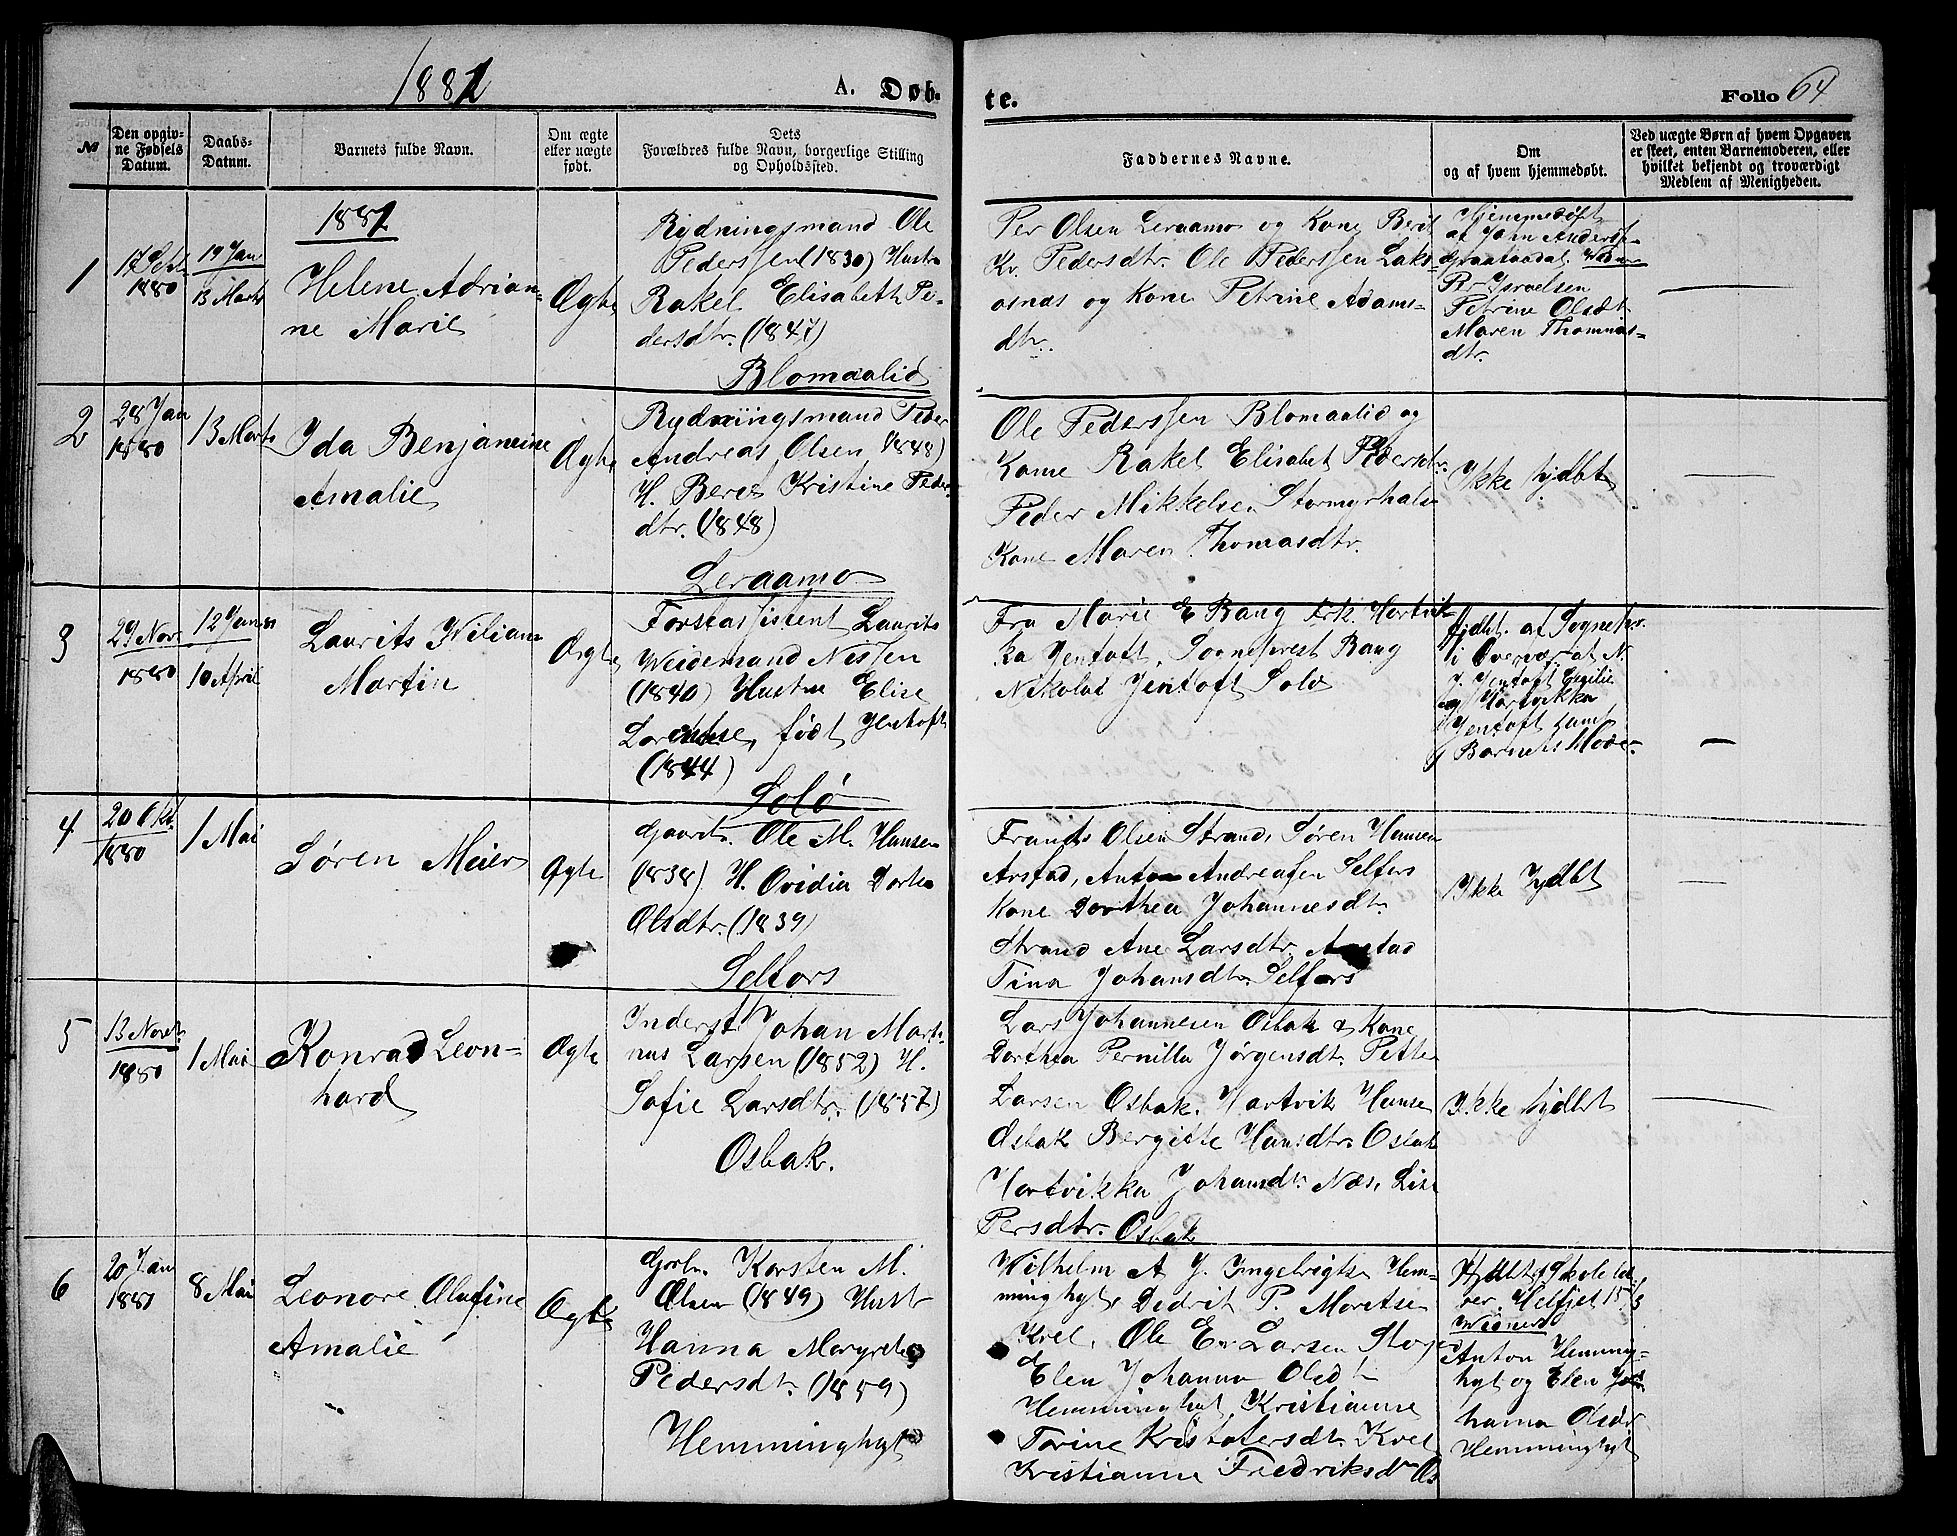 1881
A. Døb-
te.
Folio 64
№
Den opgiv-
ne Fødsels
Datum.
Daabs-
Datum.
Barnets fulde Navn.
Om ægte
eller uægte
født.
Dets
Forældres fulde Navn, borgerlige Stilling
og Opholdssted.
Faddernes Navne.
Om
og af hvem hjemmedøbt.
Ved uægte Børn af hvem Opgaven
er skeet, enten Barnemoderen, eller
hvilket bekjendt og troværdigt
Medlem af Menigheden.
1881
1
1880
19 Jan
13 Marts
Helene Adrian-
ne Marie
Ægte
Rydningsmand Ole
Pederssen (1830) Hustru
Rakel Elisabeth Pe-
dersdtr. (1847)
Blomaalid
Per Olsen Leraamo og Kone Berit
Kr. Pedersdtr. Ole Pederssen Laks-
osnæs og Kone Petrine Adams-
dtr.
Hjemmedøbt
af John Anders-
Per Israelsen
Petrine Olsdt
Maren Thomas-
dtr.
2
28 Jan
1880
13 Marts
Ida Benjamine
Amalie
Ægte
Rydningsmand Peder
Andreas Olsen (1848)
H. Beret Kristine Peder-
dtr. (1848)
Leraamo
Ole Pederssen Blomaalid og
Kone Rakel Elisabet Pedersdtr.
Peder Mikkelsen Stormyrhals
Kone Maren Thomasdtr.
Ikke hjdbt
3
29 Nov.
1880
12 Jan 81
10 April
Laurits Wiliam
Martin
Ægte
Forstassistent Laurits
Weidemand Nessen
(1840) Hustru Elise
Lorentse, født Jentoft
(1844)
Solø
Fru Marie E Bang Frk. Hartvik-
ka Jentoft, Sogneprest Bang
Nikolai Jentoft Solø
hjdbt. af Sognepr.
i Overvær af N.
J. Jentoft Emilie
og Hartvikka
Jentoft samt
Barnets Moder.
4
20 Okt.
1880
1 Mai
Søren Meier
Ægte
Gaard. Ole M. Hansen
(1838) H. Ovidia Dorthea
Olsdtr. (1839)
Selfors
Frants Olsen Strand, Søren Hansen
Arstad, Anton Andreasen Selfors
Kone Dorthea Johannesdt.
Strand Ane Larsdtr. Arstad
Tina Johansdt. Selfors
Ikke hjdbt
5
13 Novbr
1880
1 Mai
Konrad Leon-
hard
Ægte
Inderst Johan Mart-
nus Larsen (1852) H.
Sofie Larsdtr. (1857)
Osbak.
Lars Johannesen Osbak & Kone
Dorthea Pernilla Jørgensdt. Petter
Larsen Osbak. Hartvik Hanse
Osbak Bergitte Hansdtr. Osbak
Hartvikka Johansdt. Næs, Lise
Persdtr. Osbak
Ikke hjdbt
6
20 Jan
1881
8 Mai
Leonore Olufine
Amalie
Ægte
Gbr. Karsten M.
Olsen (1849) Hustr
Hanna Margrete
Pedersdt. (1859)
Hemminghyt
Wilhelm A J. Ingebrigts Hem-
minghyt, Dedrik P. Moretse
Kvel, Ole E. Larsen
Elen Johanna Olsdt
Hemminghyt, Kristianne
Torine Kristofersdt. Kvel
Kristianne Fredriksdtr Os
Hjdbt af Skolelæ-
rer Helfjet 15/3
Vidner
Anton Hemming-
hyt og Elen Jo-
hanna Olsdtr
Hemminghyt